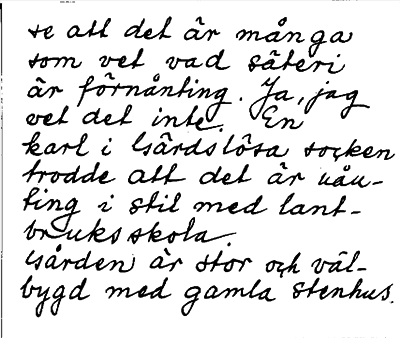 se att det är många
som vet vad säteri
är förnånting. Ja, jag
vet det inte. En
karl i Gärdslösa socken
trodde att det är nån-
ting i stil med lant-
bruksskola.
Gården är stor och väl-
bygd med gamla stenhus.